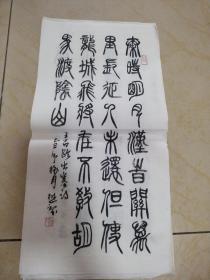 秦時明月漢旹關萬
里長征人未還但使
龍城飛將在不教胡
馬渡陰山
王昌齡出塞詩